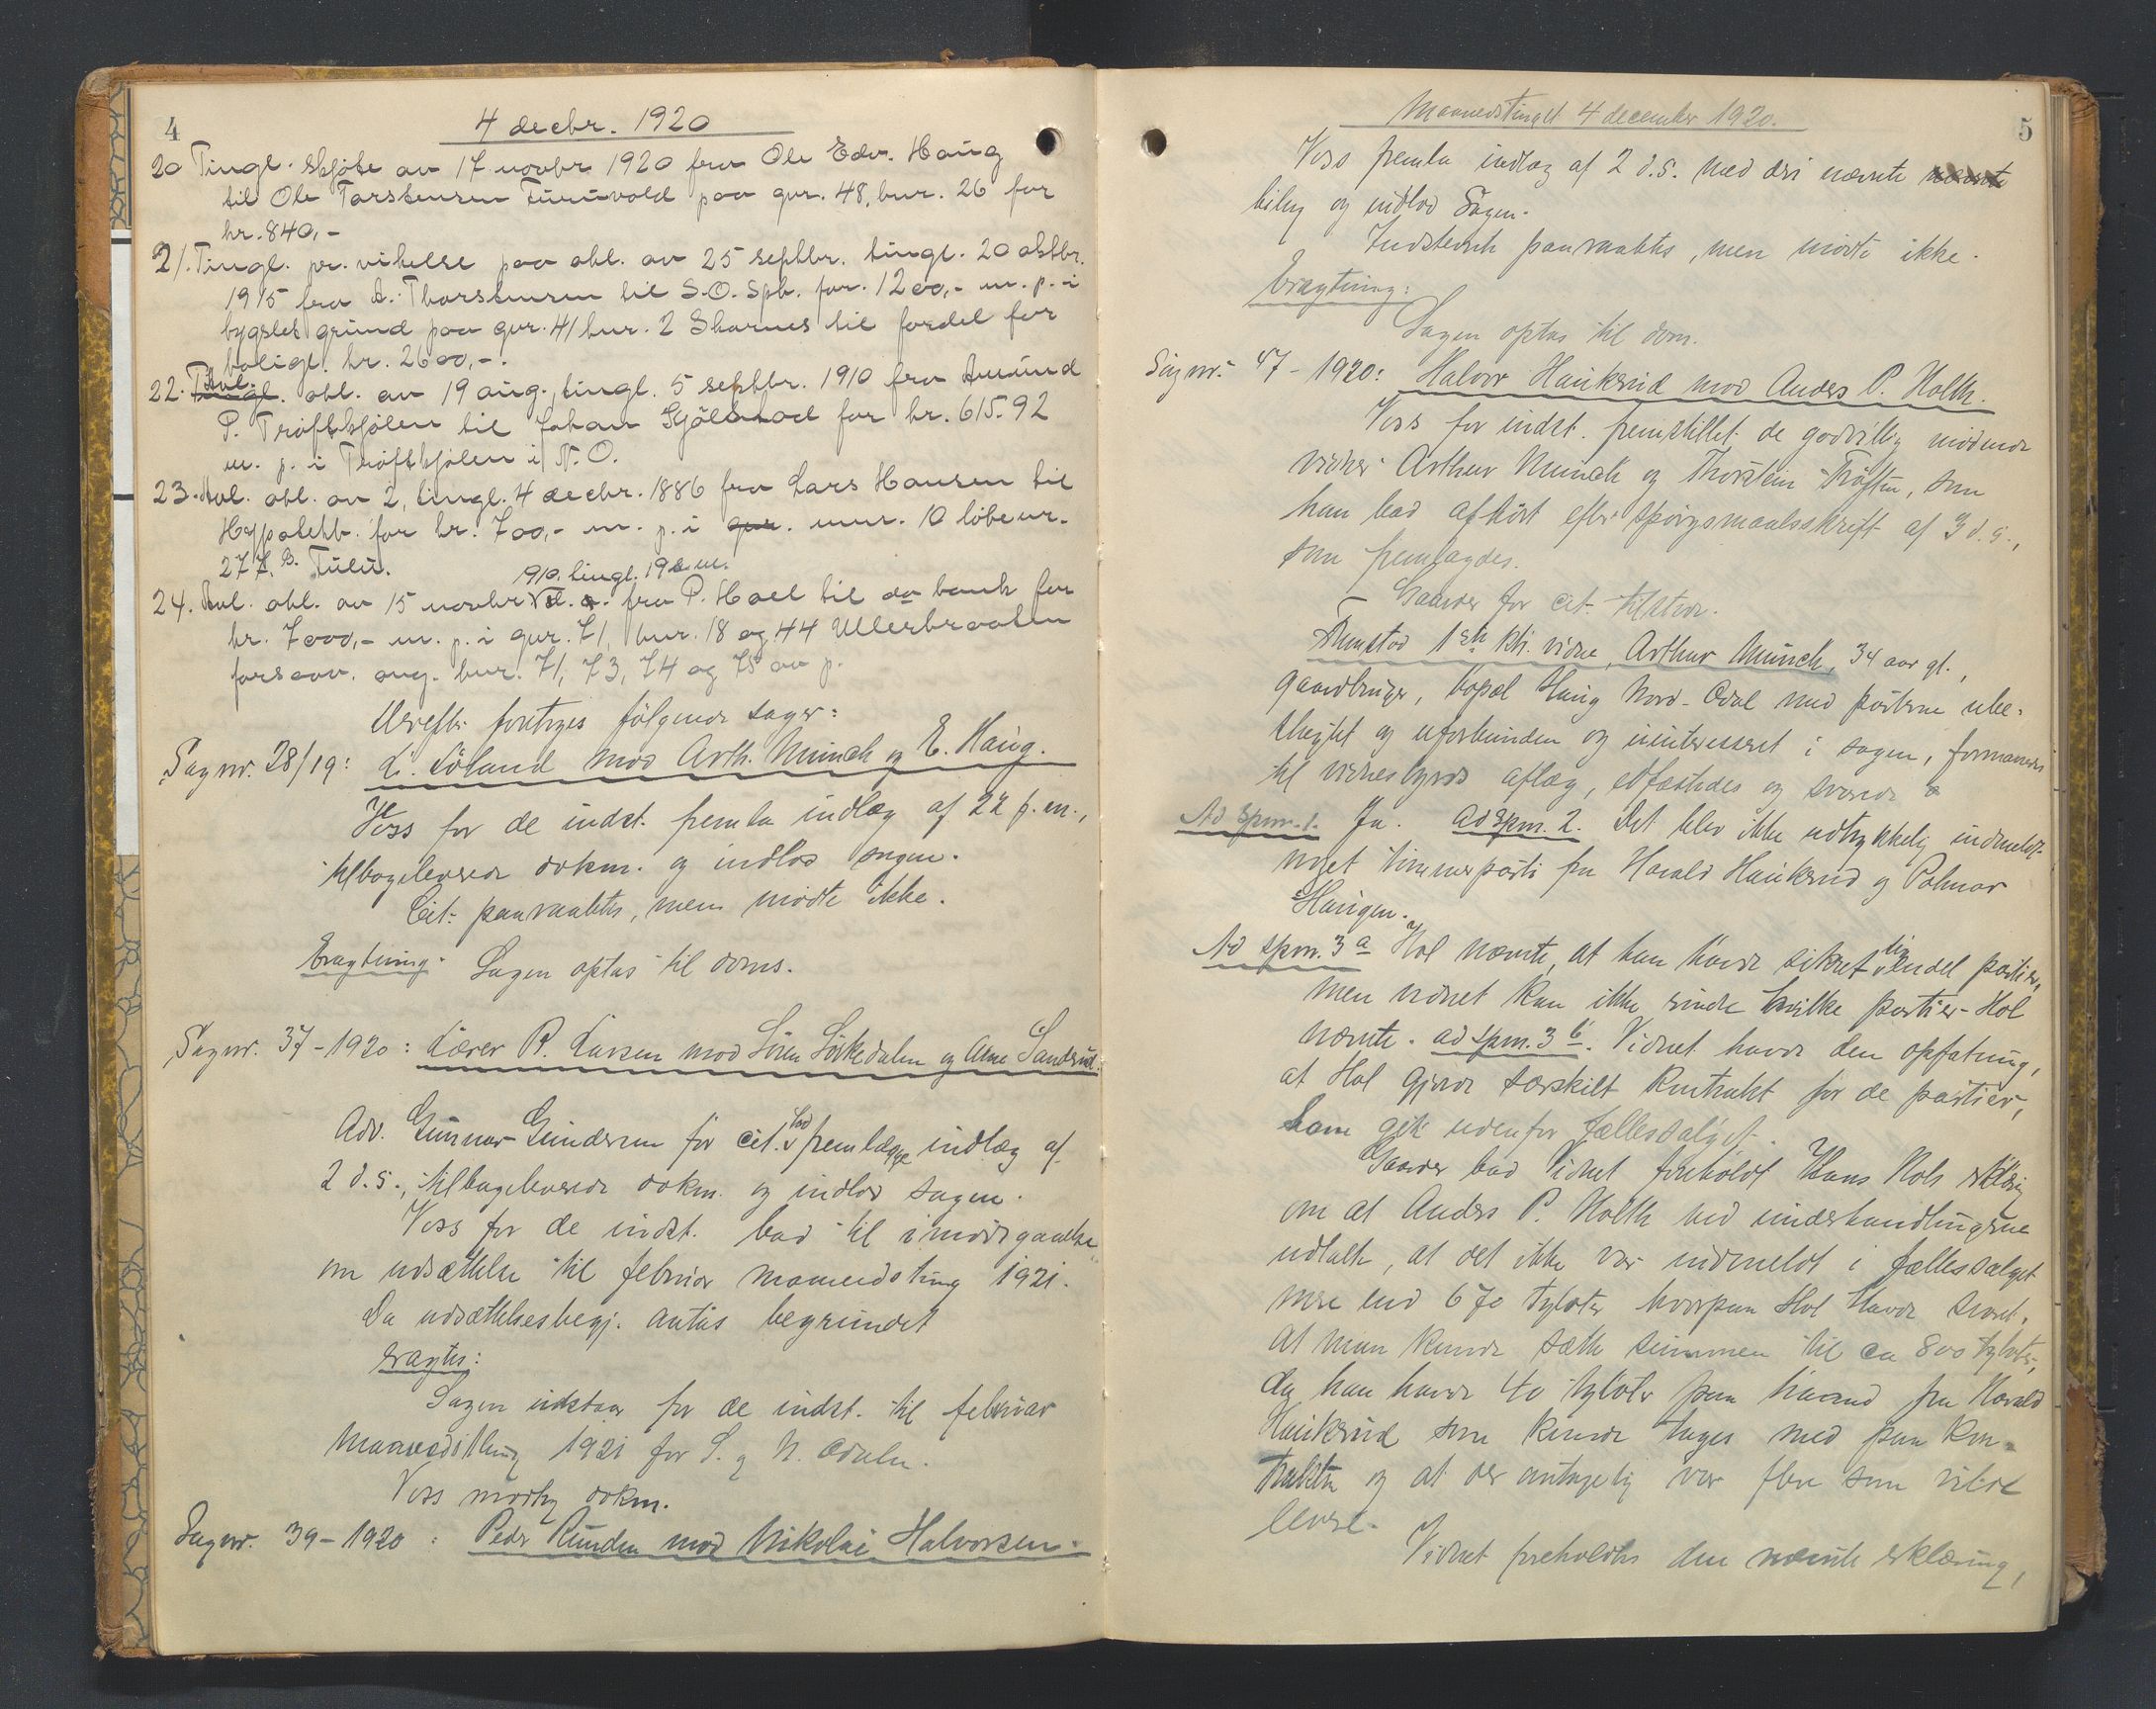 4
4 decbr. 1920
20 Tingl. skjøte av 17 novbr 1920 fra Ole Edv. Haug
til Ole Torstensen Furuvold paa gnr. 48, bnr. 26 for
kr. 840,-
21. Tingl. pr. vikelse paa obl. av 25 septbr. tingl. 20 oktbr.
1915 fra A. Thorstensen til S.O. Spb. for. 1200,- m. p. i
bygslet grund paa gnr. 41 bnr. 2 Skarnes til fordel for
boliglt. kr. 2600,-.
22. Tingl. Avl. obl. av 19 aug., tingl. 5 septbr. 1910 fra Amund
P. Trøftkjølen til Johan Kjølstad for kr. 615.92
m. p. i Trøftkjølen i N. O.
23. Avl. obl. av 2, tingl. 4 decbr. 1886 fra Lars Hansen til
Hypotekb. for kr. 700,- m. p. i gnr. mnr. 10 løbenr.
277, B. Tulu.
24. Avl. obl. av 15 novbr 1910. tingl. 19 s. m. fra P. Hoel til do bank for
kr. 7000,- m. p. i gnr. 71, bnr. 18 og 44 Ullerbraaten
forsaav. ang. bnr. 71, 73, 74 og 75 av p.
Derefter foretoges følgende sager:
Sag nr. 28/19: L. Löland mod Arth. Munch og E. Haug.
Voss for de indst. fremla indlæg af 22 f. m.,
tilbageleverede dokm. og indlod sagen.
Cit. paaraabtes, men mødte ikke.
Eragtning: Sagen optas til doms.
Sag nr. 37-1920: Lærer R. Larsen mod Sören Sörkedalen og Arne Sanderud.
Adv. Gunnar Gundersen for cit. lod fremlægge indlæg af
2 d.s., tilbageleverede dokm. og indlod sagen.
Voss for de indst. bad til imødegaaelse
om udsættelse til februar maanedsting 1921.
Da udsættelsesbegj. antas begrundet
eragtes:
Sagen udstaar for de indst. til februar
Maanedsthing 1921 for S. og N. Odalen.
Voss modtog dokm.
Sag nr. 39-1920: Peder Runden mod Nikolai Halvorsen.
5
Maanedstinget 4 december 1920.
Voss fremla indlæg af 2 d.s. med deri nævnte
bilag og indlod Sagen.
Indstevnte paaraabtes, men mødte ikke.
Eragtning:
Sagen optas til dom.
Sag nr. 47-1920: Halvor Haukerud mod Anders P. Holth.
Voss for indst. fremstillet de godvillig mødende
vidner Arthur Munch og Thorstein Trøften, som
han bad afhørt efter spørgsmaalsskrift af 3 d.s.,
som fremlagdes.
Gaarder for cit. tilstede.
Fremstod 1ste kt. vidne, Arthur Munch, 34 aar gl.,
gaardbruger, bopæl Haug Nord-Odal med parterne ube-
slægtet og uforbunden og uinteresseret i sagen, formanedes
til vidnesbyrds aflæg, edfæstedes og svarede
Ad spm. 1. Ja. Ad spm. 2. Det blev ikke udtrykkelig indmeldt
noget tømmerparti fra Harald Haukerud og Palmar
Haugen.
Ad spm. 3 a Hol nævnte, at han havde sikret sig endel partier,
men vidnet kan ikke erindre hvilke partier Hol
nævnte. ad spm. 3 b. Vidnet havde den opfatning,
at Hol gjorde særskilt kontrakt for de partier,
som gik udenfor fællessalget.
Gaarder bad Vidnet foreholdt Hans Hols erklæring
om at Anders P. Holth ved underhandlingerne
udtalte, at det ikke var indmeldt i fællessalget
mere end 670 tylvter hvorpaa Hol havde svaret,
at man kunde sætte summen til ca 800 tylvter,
da han havde 40 tylvter paa haand fra Harald
Haukerud som kunde tages med paa kon-
trakten og at der antagelig var flere som vilde
levere.
Vidnet foreholdtes den nævnte erklæring,